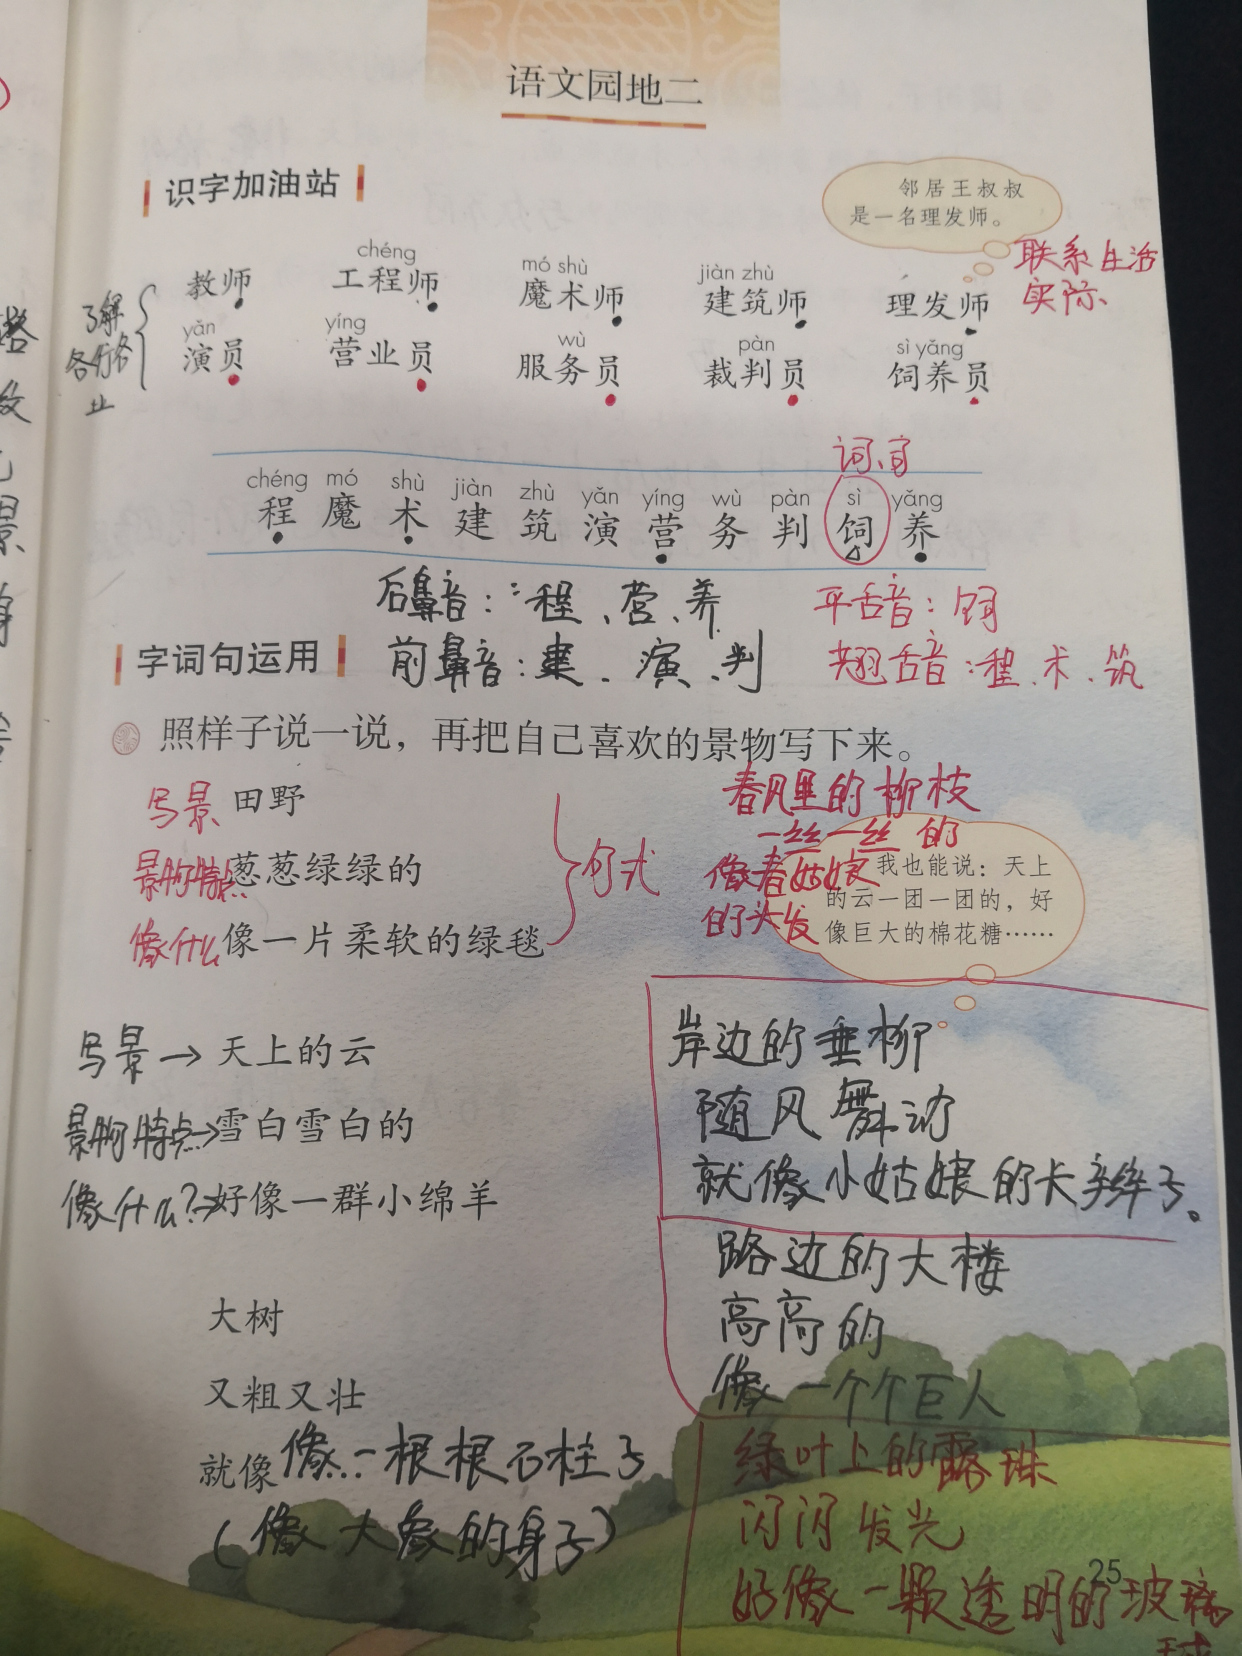 语文园地二
识字加油站
邻居王叔叔
是一名理发师。
联系生活
实际
chéng
mó shù
jiàn zhù
教师 工程师 魔术师 建筑师 理发师
了解
各行各
业
yǎn yíng wù pàn sì yǎng
演员 营业员 服务员 裁判员 饲养员
词、官
chéng mó shù jiàn zhù yǎn yíng wù pàn sì yǎng
程 魔 术 建 筑 演 营 务 判 饲 养
后鼻音:程、营、养
平舌音:饲
前鼻音:建、演、判
翘舌音:程、术、筑
字词句运用
照样子说一说,再把自己喜欢的景物写下来。
写景 田野
景物特点 葱葱绿绿的
像什么 像一片柔软的绿毯
句式
春风里的柳枝
一丝一丝的
像春姑娘
的头发
我也能说:天上
的云一团一团的,好
像巨大的棉花糖……
写景→天上的云
景物特点→雪白雪白的
像什么?→好像一群小绵羊
岸边的垂柳
随风舞动
就像小姑娘的长辫子。
路边的大楼
高高的
像一个个巨人
大树
又粗又壮
就像像一根根石柱子
(像大象的身子)
绿叶上的露珠
闪闪发光
好像一颗透明的玻璃
球
25